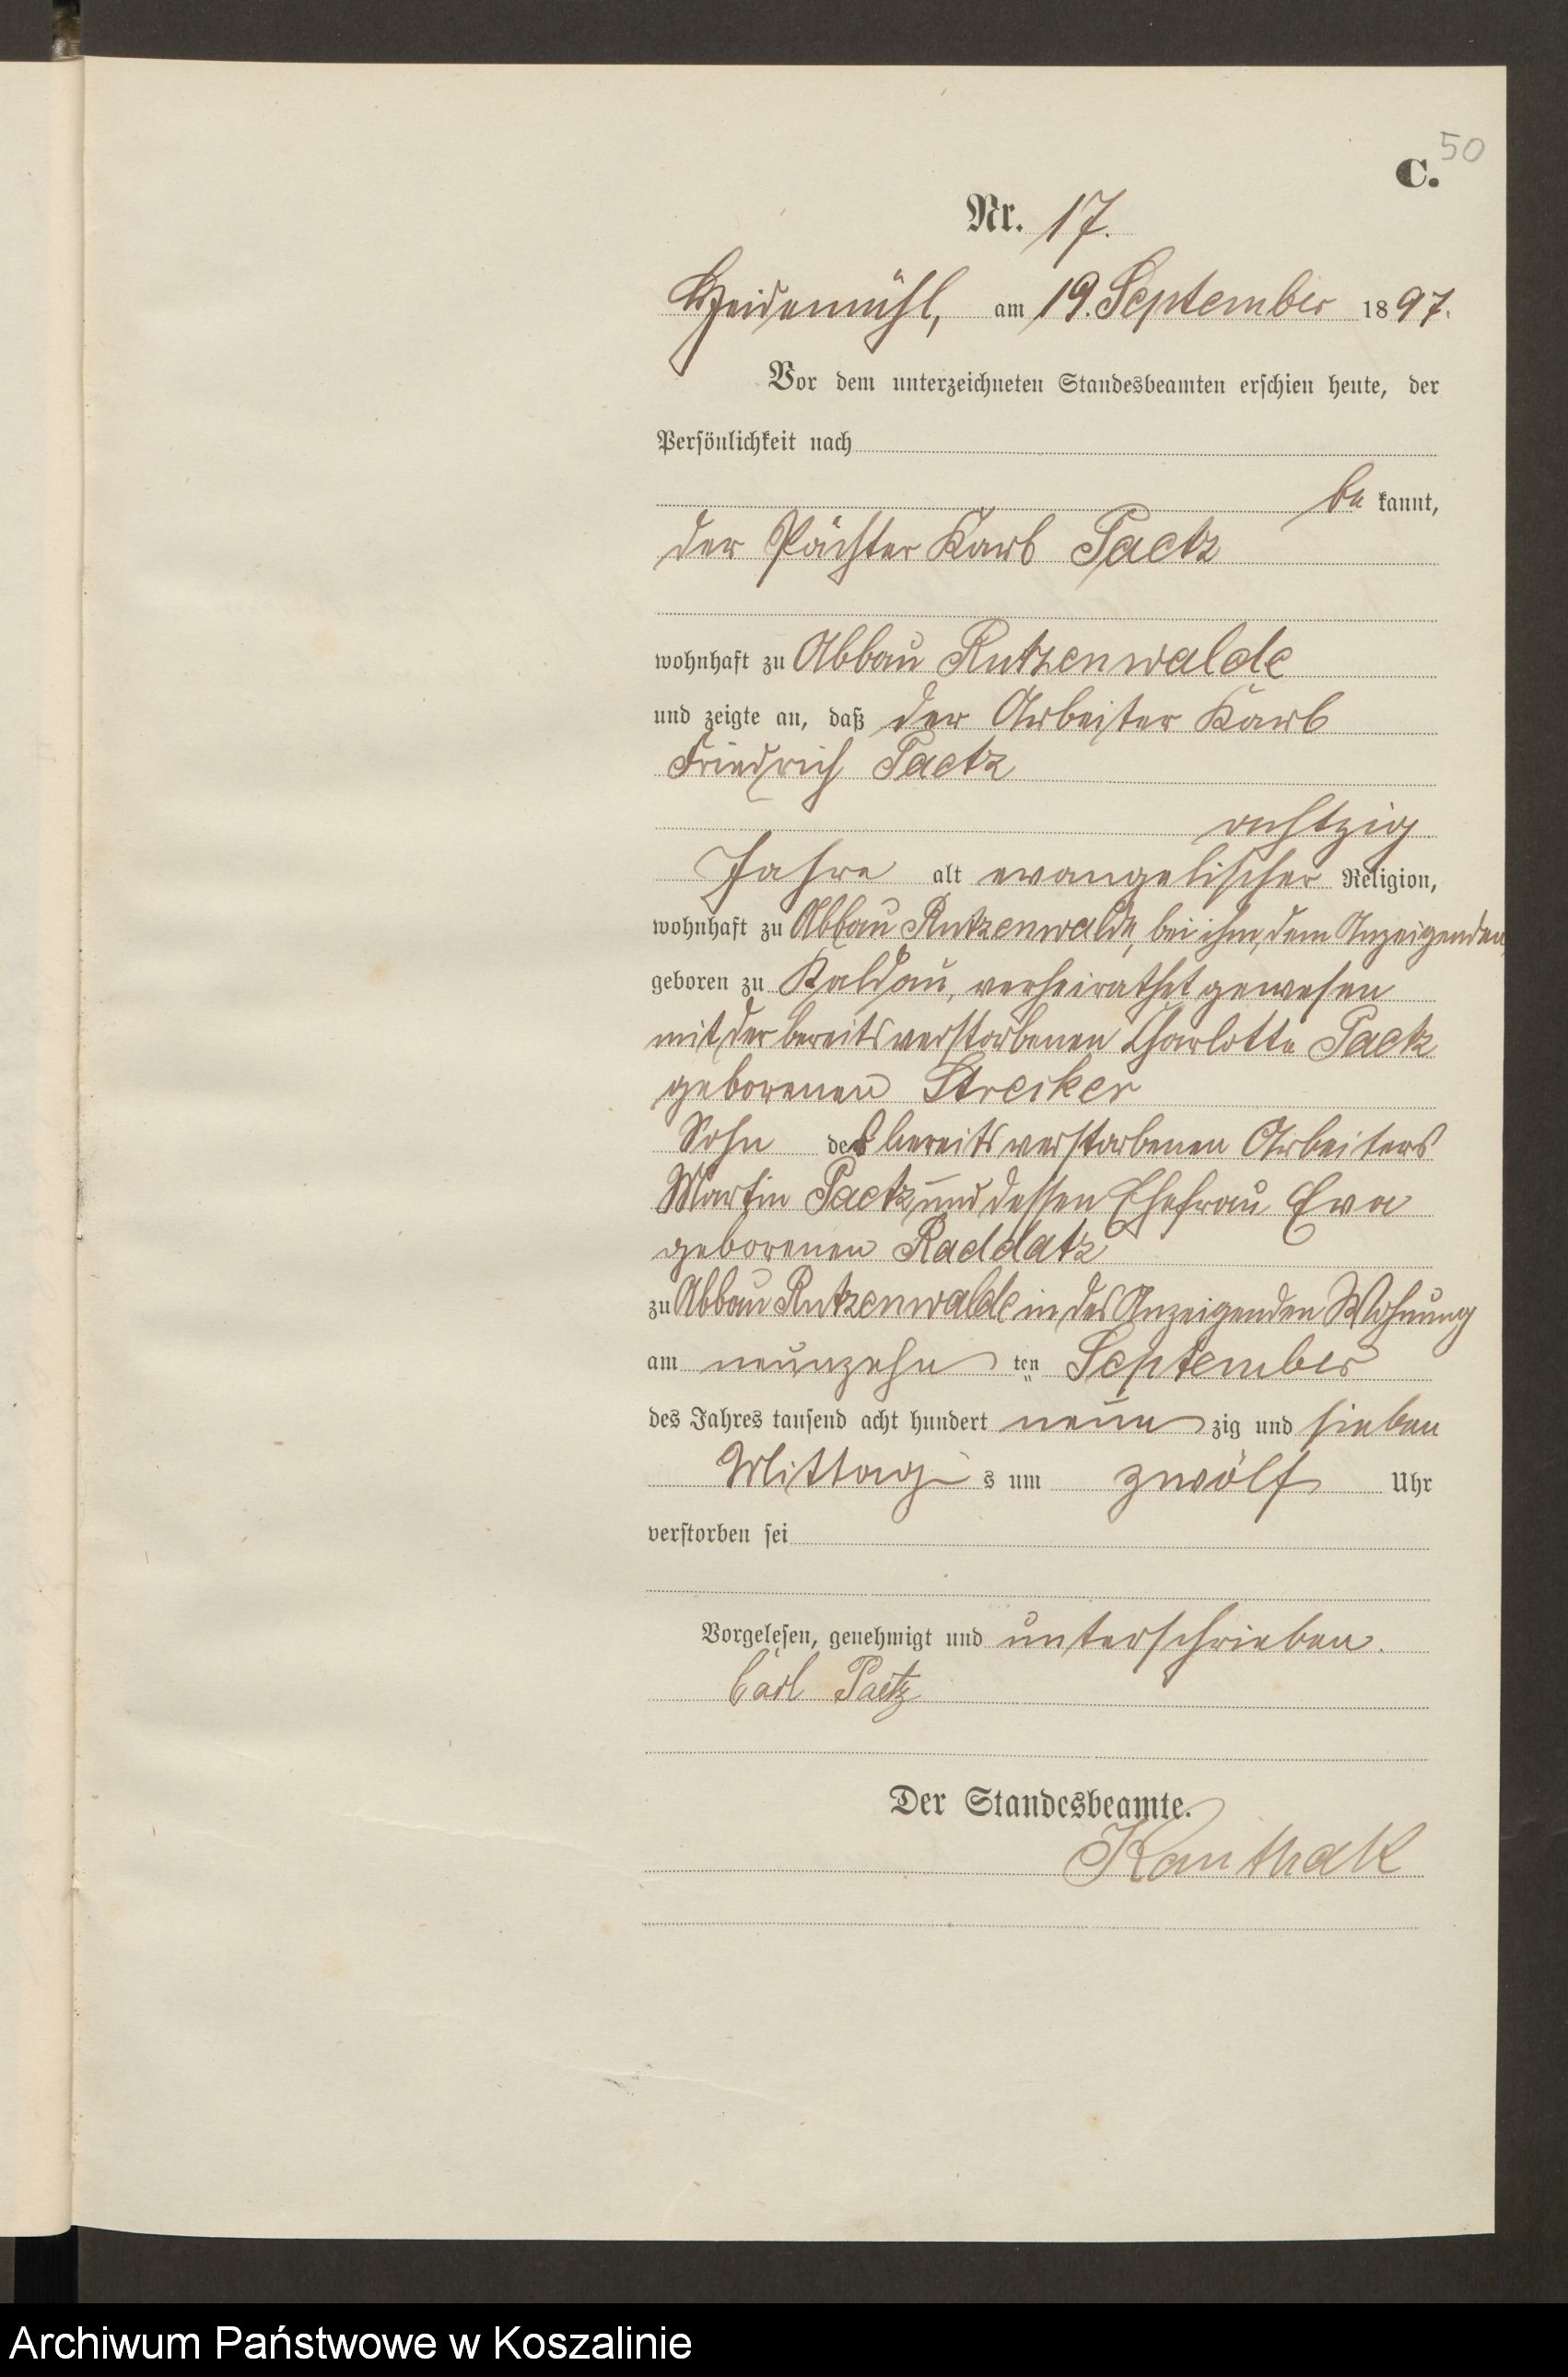 50
C.
Nr. 17.
Heidemühl, am 19. September 1897.
Vor dem unterzeichneten Standesbeamten erschien heute, der
Persönlichkeit nach
be kannt,
der Pächter Karl Paetz
wohnhaft zu Abbau Rutzenwalde
und zeigte an, daß der Arbeiter Karl
Friedrich Paetz
achtzig
Jahre alt evangelischer Religion,
wohnhaft zu Abbau Rutzenwalde, bei ihm, dem Anzeigenden,
geboren zu Kaldau, verheirathet gewesen
mit der bereits verstorbenen Charlotte Paetz
geborenen Streiker
Sohn des bereits verstorbenen Arbeiters
Martin Paetz und dessen Ehefrau Eva
geborenen Raddatz
zu Abbau Rutzenwalde in des Anzeigenden Wohnung
am neunzehn ten September
des Jahres tausend acht hundert neun zig und sieben
Mittag s um zwölf Uhr
verstorben sei
Vorgelesen, genehmigt und unterschrieben.
Carl Paetz
Der Standesbeamte.
Kanthak
Archiwum Państwowe w Koszalinie